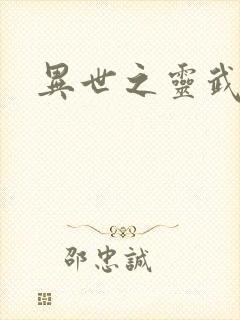 異世之靈武
邵忠誠